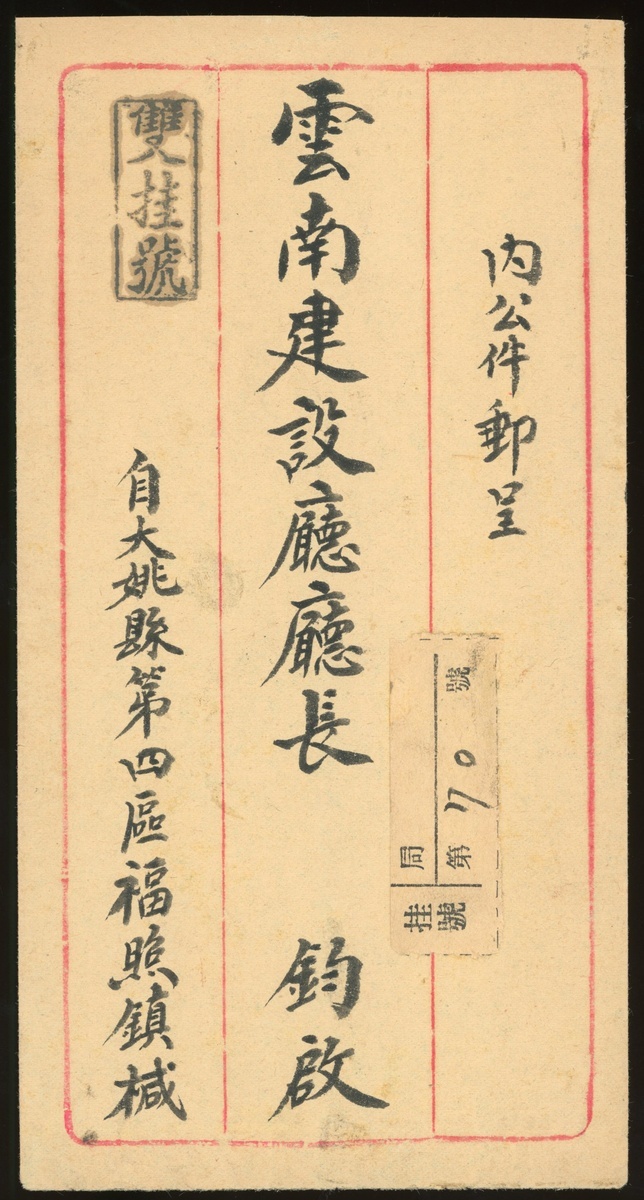 内公件郵呈
雲南建設廳廳長 鈞啟
雙挂號
自大姚縣第四區福照鎮椷
挂號
局
第 70 號